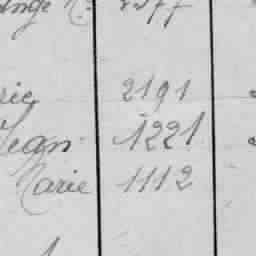 Ange 2377
rie 2191
Jean 1221
Marie 1112